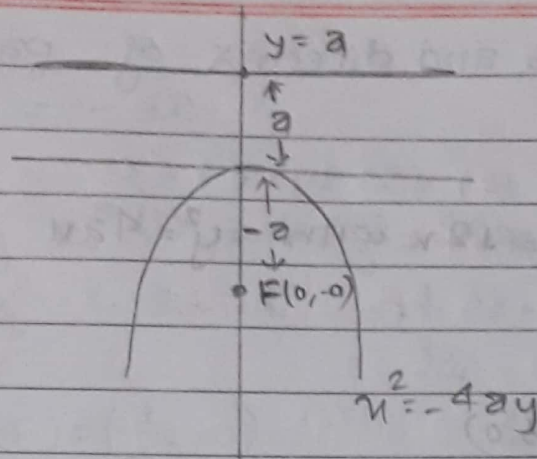 y = a
a
-a
F(0,-a)
x² = -4ay